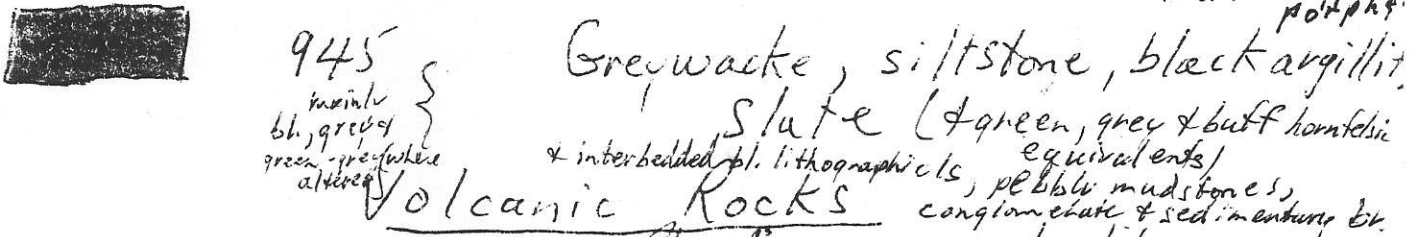 945 Greywacke, siltstone, black argillit
mainly
bl, grey &
green-grey where
altered
slate (& green, grey & buff hornfelsic
equivalents)
& interbedded bl. lithographic ls, pebbly mudstones,
conglomerate & sedimentary br.
Volcanic Rocks